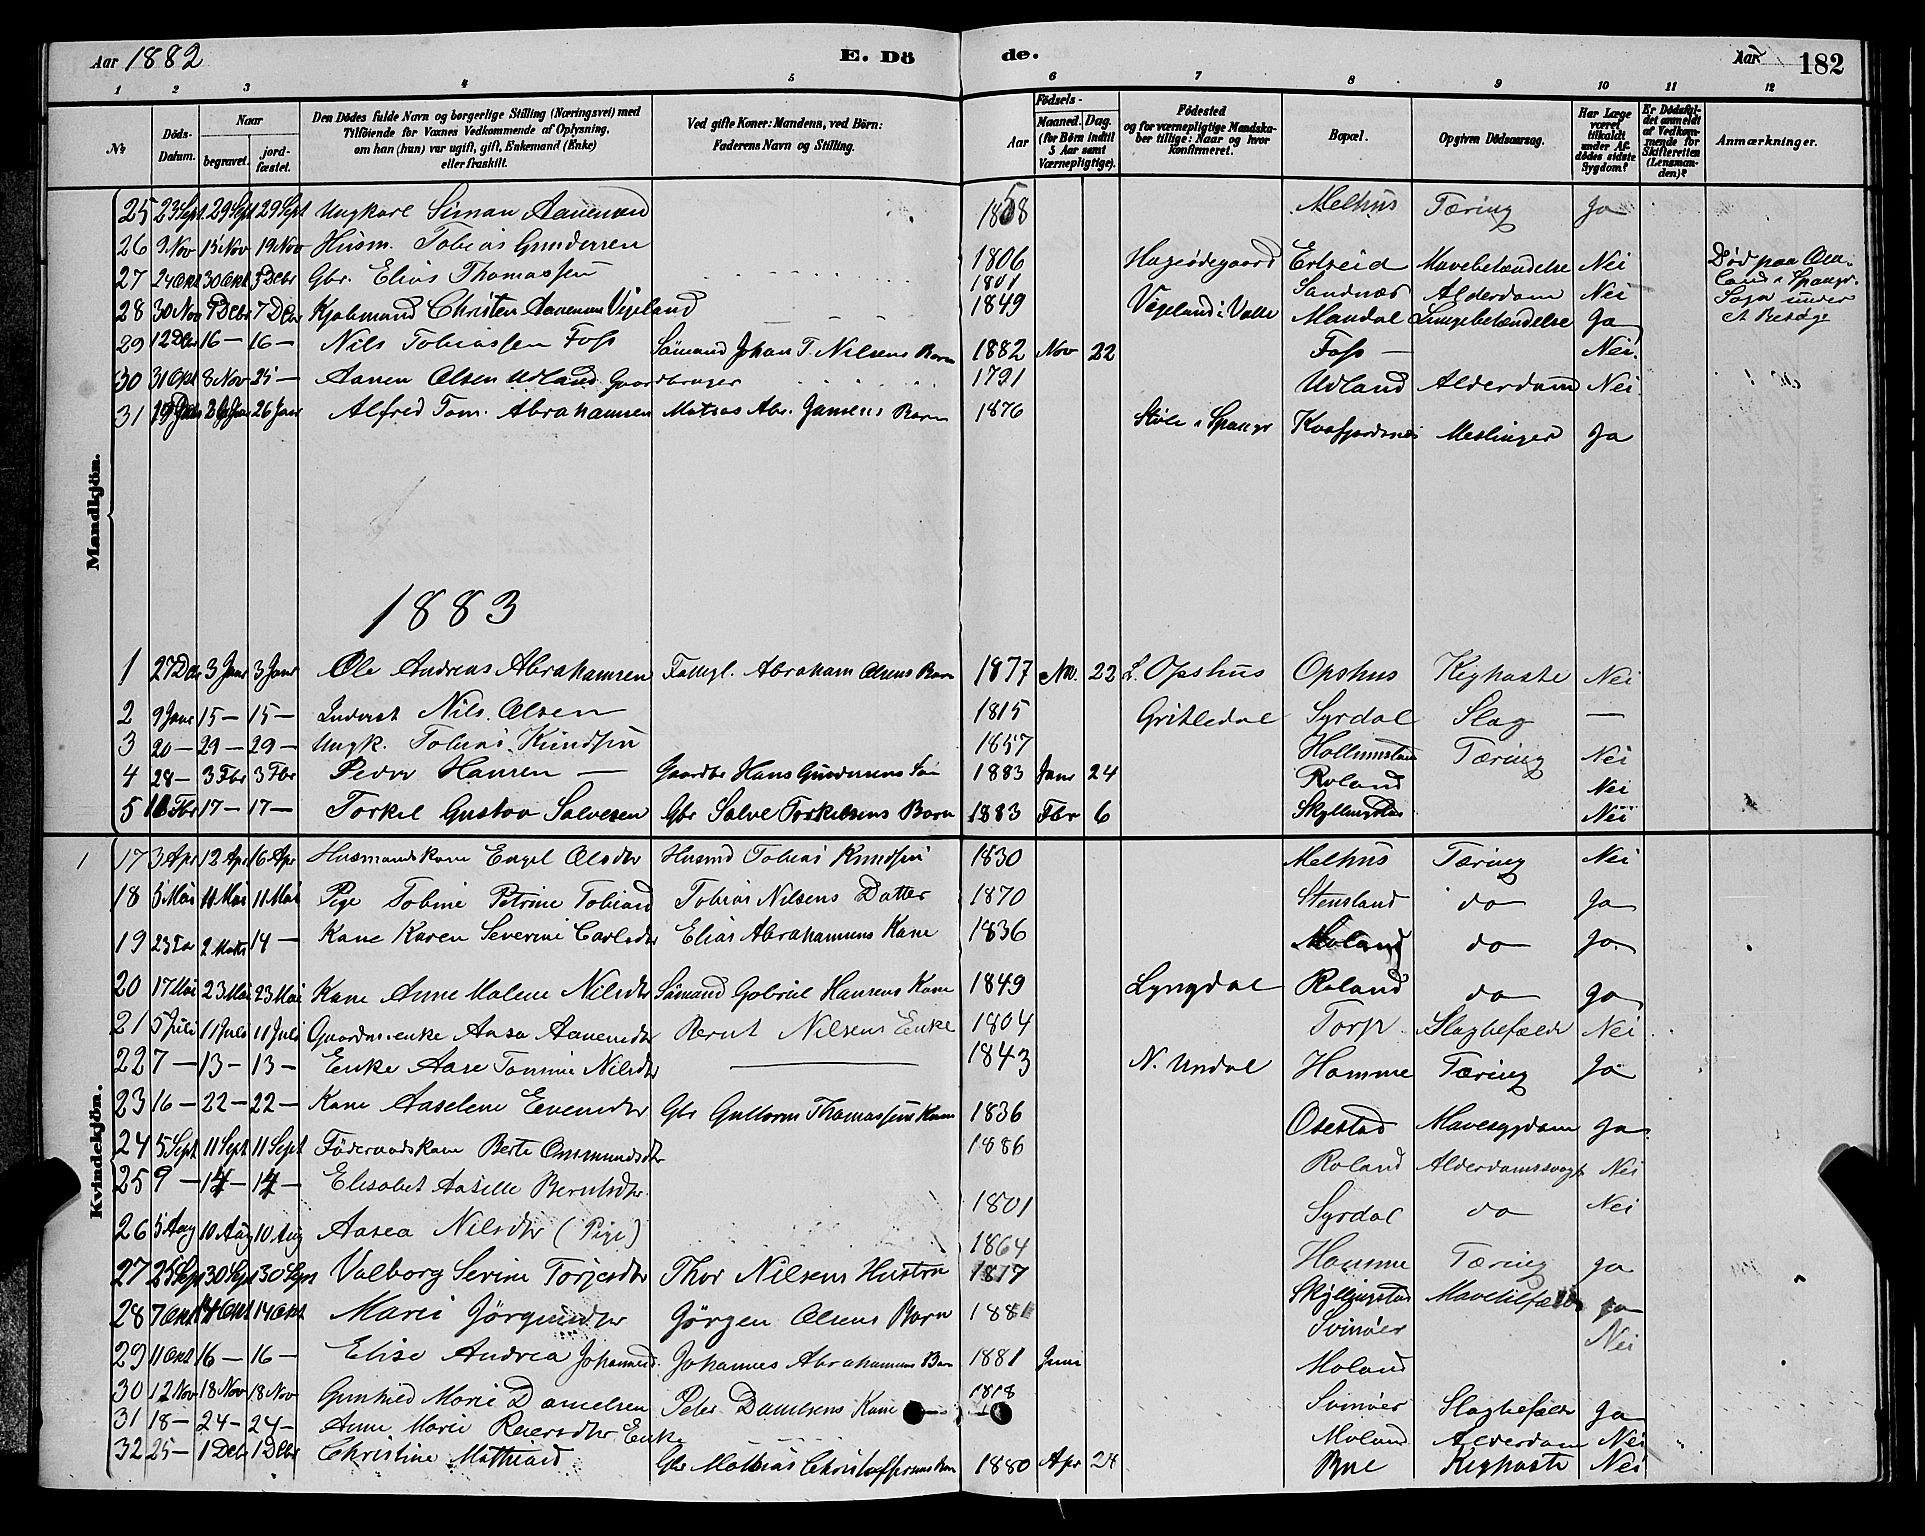 Aar 1882 E. Döde. Aar 182
1 2 3 4 5 6 7 8 9 10 11 12
No. Döds-Datum. Naar begravet. jordfæstet. Den Dödes fulde Navn og borgerlige Stilling (Næringsvei) med Tilföiende for Voxnes Vedkommende af Oplysning, om han (hun) var ugift, gift, Enkemand (Enke) eller fraskilt. Ved gifte Koner: Mandens, ved Börn: Faderens Navn og Stilling. Födsels- Aar Maaned. Dag. (for Börn indtil 5 Aar samt Værnepligtige). Födested og for værnepligtige Mandskaber tillige: Naar og hvor konfirmeret. Bopæl. Opgiven Dödsaarsag. Har Læge været tilkaldt under Afdödes sidste Sygdom? Er Dödsfaldet anmeldt af Vedkommende for Skifteretten (Lensmanden)? Anmærkninger.
Mandkjön.
25 23 Sept 29 Sept 29 Sept Ungkarl Simon Aanensen 1858 Melhus Tæring Ja
26 9 Nov 15 Nov 19 Nov Husm. Tobias Gundersen 1806 Hageødegaard Ertseid Mavebetændelse Nei Död paa
27 24 Okt 30 Okt 3 Debr Gbr. Elias Thomassen 1801 Sandnæs Alderdom Nei
28 30 Nov 7 Debr 7 Debr Kjøbmand Christen Aanensen Vigeland 1849 Vigeland i Valle Mandal Lungebetændelse Ja
29 12 Debr 16 — 16 — Nils Tobiassen Foss Sömand Johan T. Nilsens Barn 1882 Nov 22 Foss — Nei
30 31 Okt 8 Nov 25 — Aanen Olsen Udland Gaardbruger 1791 Udland Alderdom Nei
31 19 Janr 26 Janr 26 Janr Alfred Tom. Abrahamsen Matias Abr. Jansens Barn 1876 Støle i Spangr Kvafjordnes Meslinger Ja
1883
1 27 Dec 3 Janr 3 Janr Ole Andreas Abrahamsen Abraham Olsens Barn 1877 22 L. Opshus Opshus Kighoste Nei
2 9 Janr 15 — 15 — Inderst Nils Olsen 1815 Gritledal Syrdal Slag —
3 20 — 29 — 29 — Ungk. Tobias Knudsen 1857 Hollumstad Tæring Nei
4 28 — 3 Fbr 3 Fbr Peder Hansen — Gaardbr Hans Gundersens Sön 1883 Janr 24 Roland Nei
5 16 Fbr 17 — 17 — Torkel Gustav Salvesen Gbr Salve Torkelsens Barn 1883 Fbr 6 Skyllingstad Nei
Kvindekjön.
17 3 Apr 12 Apr 16 Apr Husmandskone Engel Olsdtr Husmd Tobias Knudsen 1830 Melhus Tæring Nei
18 5 Mai 11 Mai 11 Mai Pige Tobine Petrine Tobiasd Tobias Nilsens Datter 1870 Stensland do Ja
19 23 2 14 — Kone Karen Severine Carlsdtr Elias Abrahamsens Kone 1836 Moland do Ja
20 17 Mai 23 Mai 23 Mai Kone Anne Malene Nilsdtr Sömand Gabriel Hansens Kone 1849 Lyngdal Roland do Ja
21 5 Juli 11 Juli 11 Juli Gaardm.enke Aasa Aanensdtr Bernt Nilsens Enke 1804 Torp Slagtilfælde Nei
22 7 — 13 — 13 — Enke Aase Tomine Nilsdtr — 1843 N. Undal Homme Tæring Ja
23 16 — 22 — 22 — Kone Aaselene Evensdtr Gbr Guttorm Thomassens Kone 1836 Osestad Mavesygdom Ja
24 5 Sept 11 Sept 11 Sept Föderaadskone Berte Ommundsdtr 1886 Roland Alderdomssvagh Nei
25 9 — 14 — 14 — Elisabet Aasille Berntsdtr 1801 Syrdal do Nei
26 5 Aug 10 Aug 10 Aug Aasea Nilsdtr (Pige) 1864 Homme Tæring Ja
27 25 Sept 30 Sept 30 Sept Valborg Serine Torjesdtr Thor Nilsens Hustru 1817 Skyllingstad Mavetilfælde Ja
28 7 Okt 14 Okt 14 Okt Marie Jörgensdtr Jörgen Olsens Barn 1881 Svinöer Nei
29 11 Okt 16 — 16 — Elise Andrea Johannesd. Johannes Abrahamsens Barn 1881 Juni Moland
30 12 Nov 18 Nov 18 Nov Gunhild Marie Danielsen Peder Danielsens Kone 1818 Svinöer Slagtilfælde Ja
31 18 — 24 — 24 — Anne Marie Reiersdtr Enke Moland Alderdom Nei
32 25 — 1 Debr 1 Debr Christine Mathiasd Gbr Mathias Christoffersens Barn 1880 Apr 28 Bue Kighoste Nei